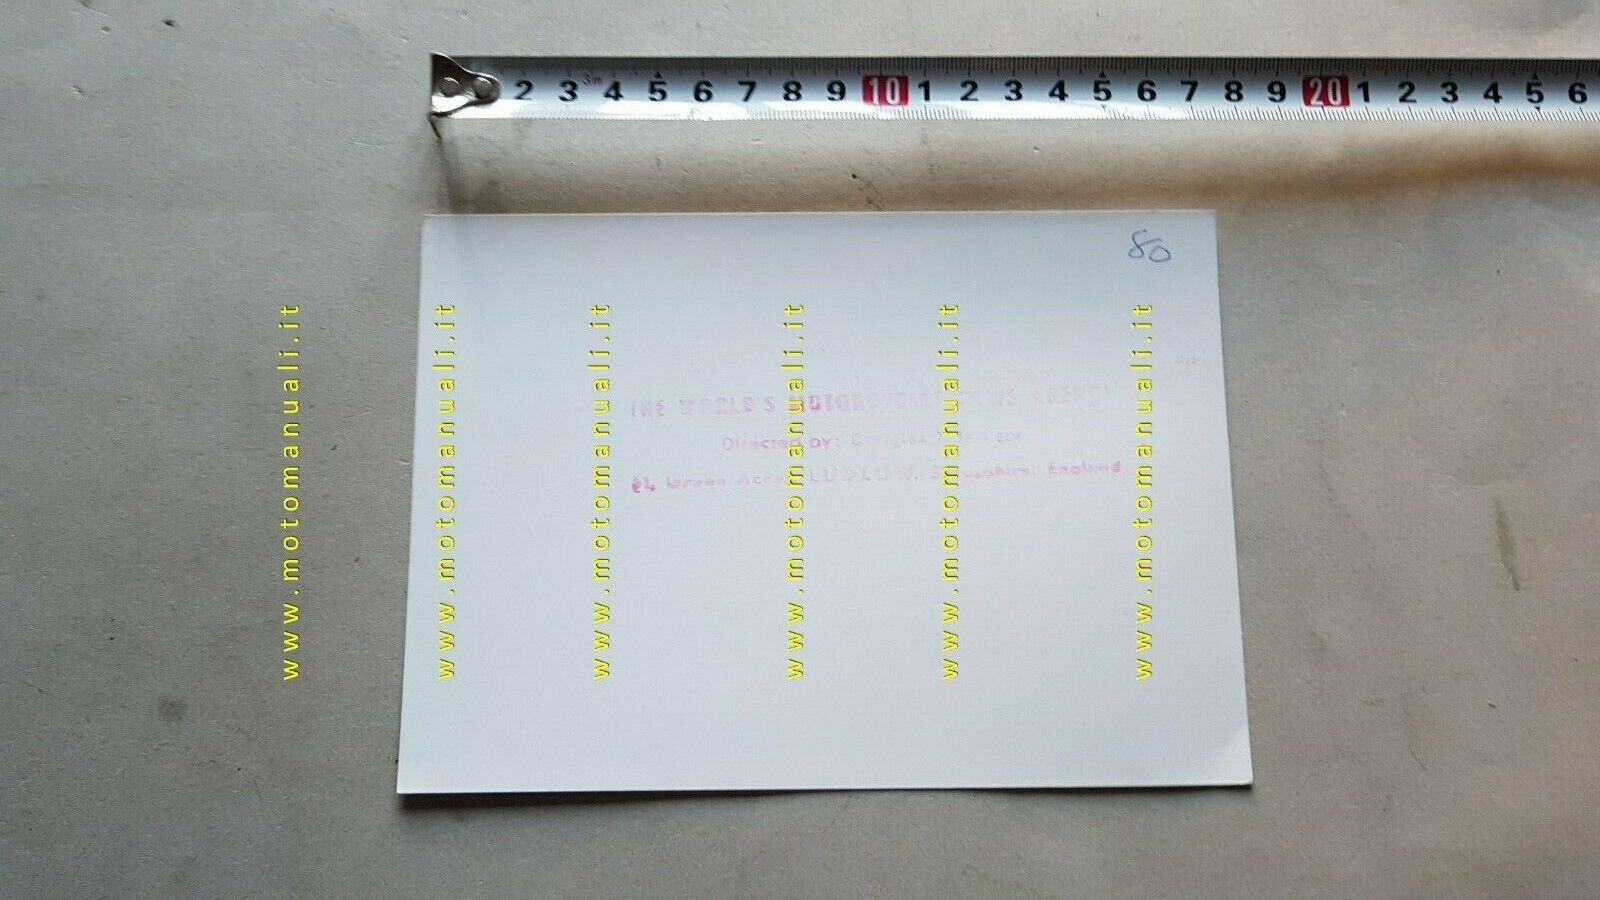 2 3 3m 4 5 6 7 8 9 10 1 2 3 4 5 6 7 8 9 20 1 2 3 4 5 6
80
THE WORLD'S MOTORCYCLE NEWS AGENCY
Directed by: Douglas
64 Green Acres LUDLOW, Shropshire, England
www.motomanuali.it
www.motomanuali.it
www.motomanuali.it
www.motomanuali.it
www.motomanuali.it
www.motomanuali.it